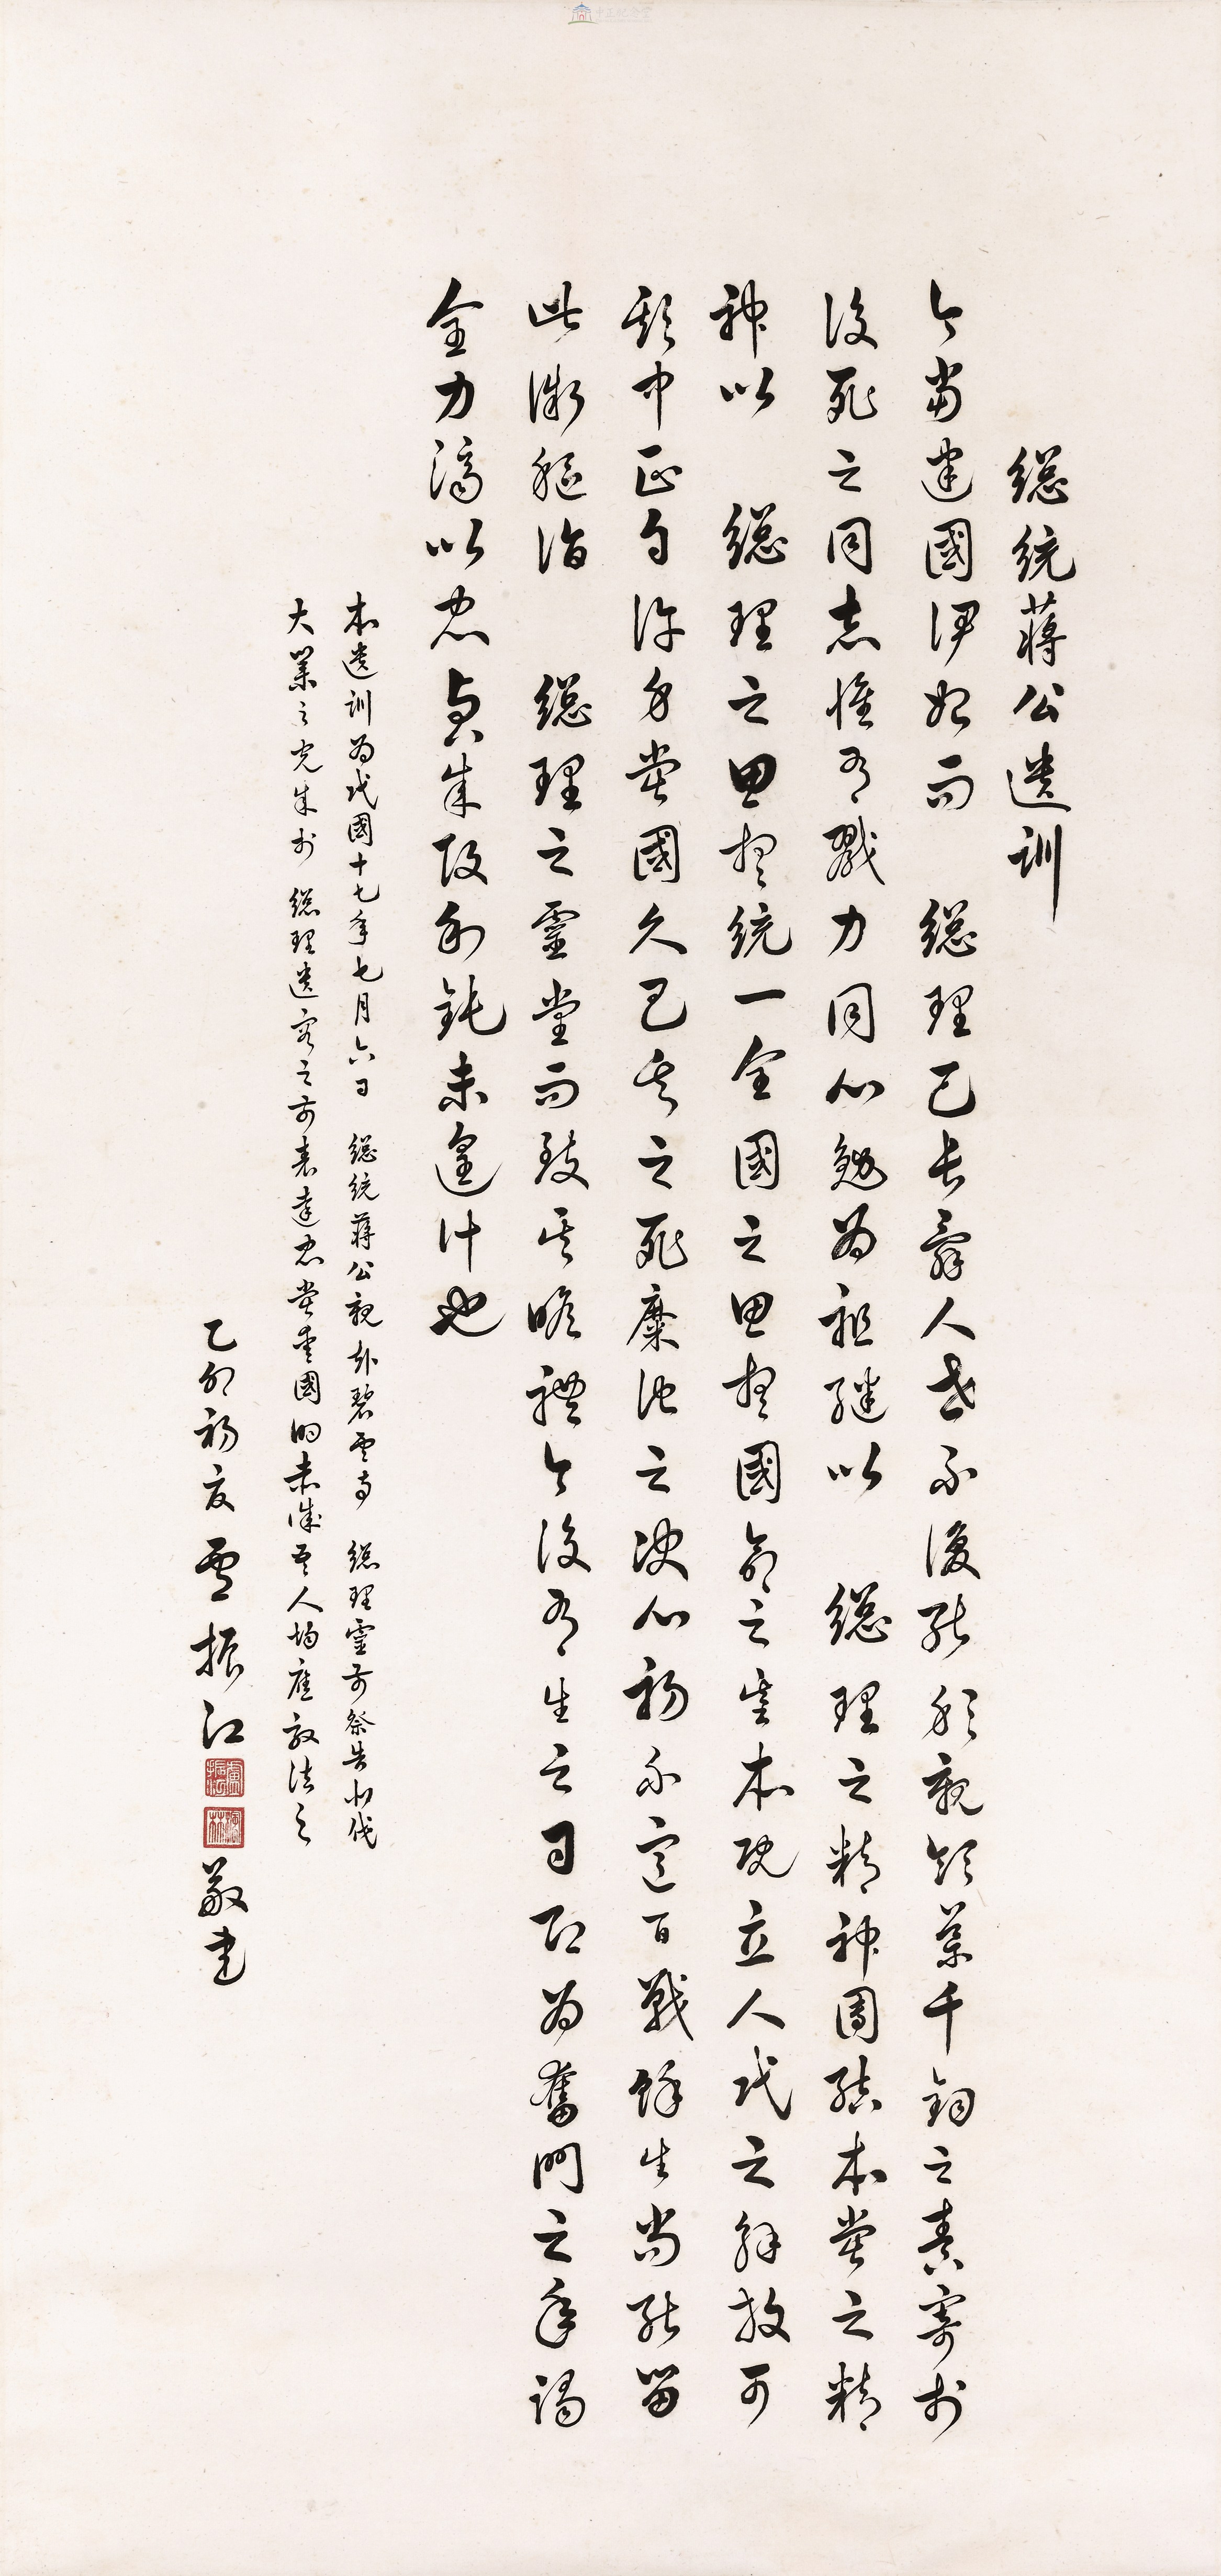 總統蔣公遺訓
今當建國伊始而 總理已長辭人世不復能躬親領導千鈞之責寄於
後死之同志惟有戮力同心勉為祖繼以 總理之精神團結本黨之精
神以 總理之思想統一全國之思想國家之基本既立人民之解放可
期中正自許身黨國久已矢之死靡他之決心初不意百戰餘生尚能留
此微軀詣 總理之靈堂而致其瞻禮今後有生之日即為奮鬥之年竭
全力濟以忠貞成敗利鈍未遑計也
本遺訓為民國十七年七月六日 總統蔣公親赴碧雲寺 總理靈前祭告北伐
大業之完成於 總理遺容之前表達忠黨愛國的赤誠吾人均應效法之
乙卯初夏 振江
敬書
中正紀念堂